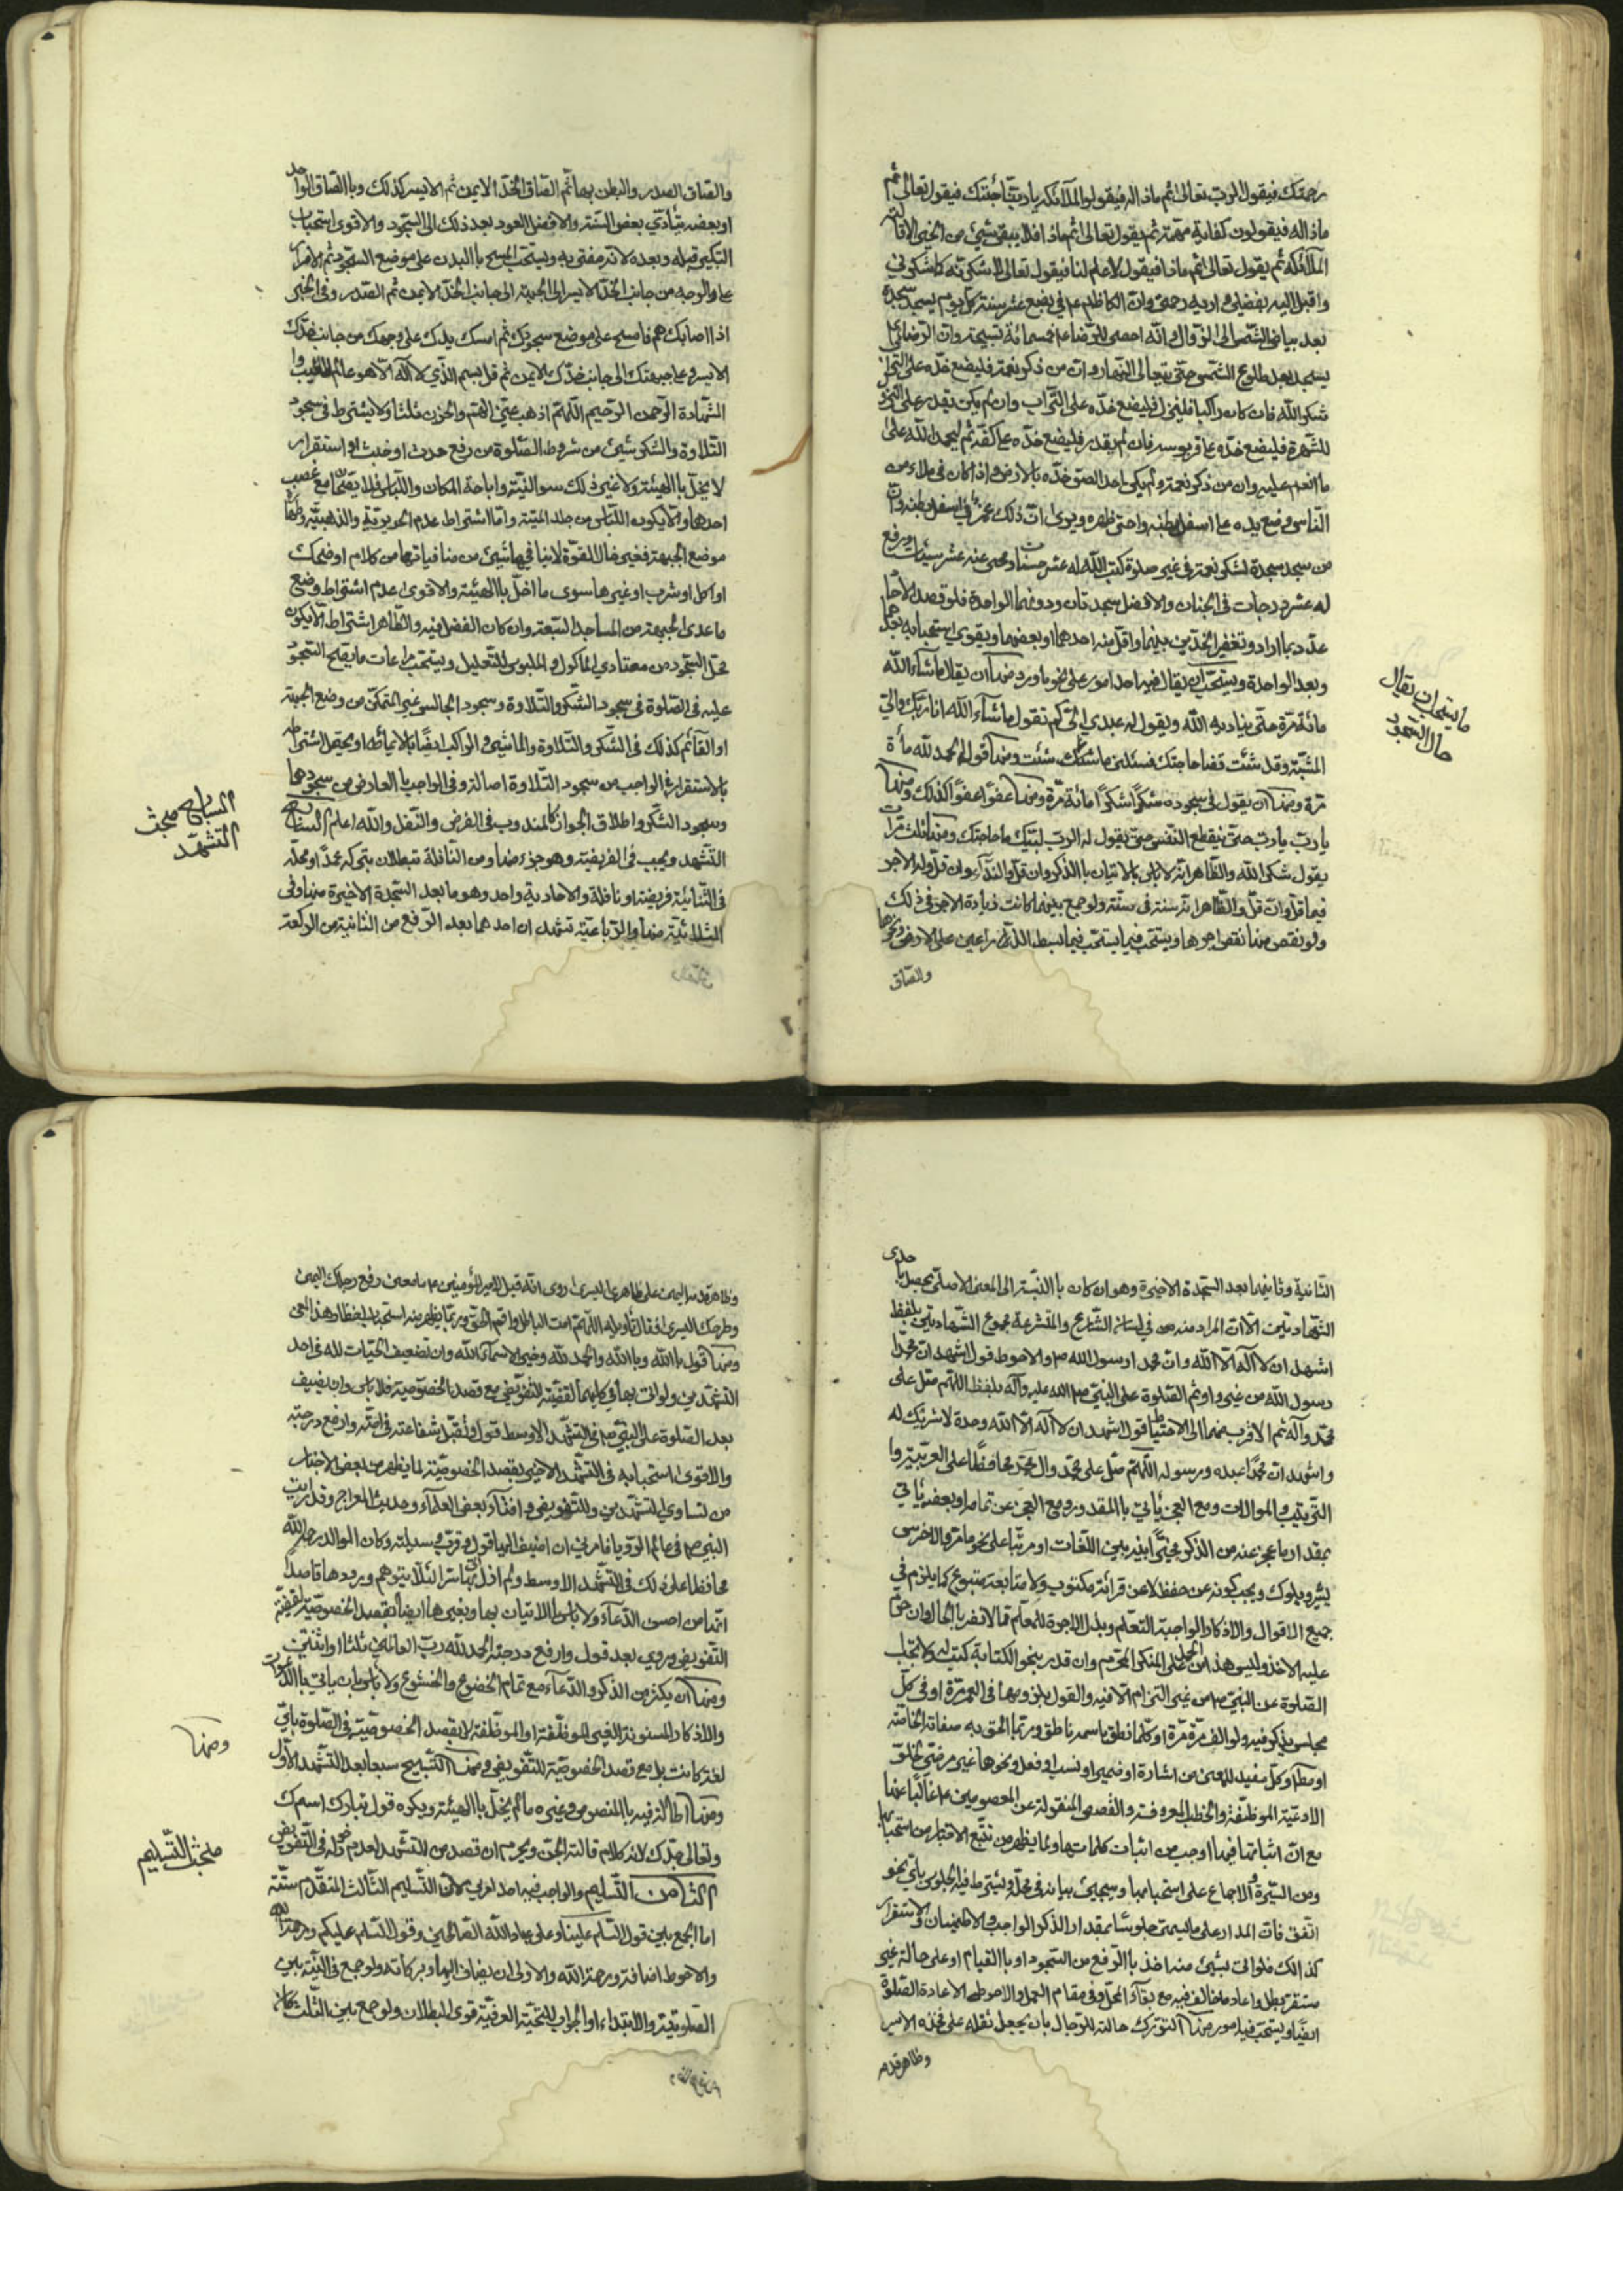 رحمتك فيقول الرب تعالى ثم ماذا له فيقولوا الملآئكه يا ربنا جنتك فيقول تعالى ثم
ماذا له فيقولون كفاية مهمته ثم يقول تعالى ثم ماذا فلا يبقى شيئ من الخير الا قالته
الملآئكه ثم يقول تعالى ثم ماذا فيقول لا علم لنا فيقول تعالى لاشكرنه كما شكرني
واقبل اليه بفضلي واريه رحمتي وان الكاظم ع في بضع عشر سنة كل يوم يسجد سجدة
بعد بياض الشمس الى الزوال وانه احصى للرضا ع خمسمائة تسبيحة وان الرضا ع
يسجد بعد طلوع الشمس حتى يتعالى النهار وان من ذكر نعمة فليضع خده على التراب
شكر الله فان كان راكبا فلينزل فليضع خده على التراب وان لم يكن يقدر على النزول
للشهرة فليضع خده على قربوسه فان لم يقدر فليضع خده على كفه ثم ليحمد الله على
ما انعم عليه وان من ذكر نعمة ولم يكن احد الصق خده بالارض واذا كان في ملاء من
الناس وضع يده على اسفل بطنه واحنى ظهره ويروى ان ذلك غمز في اسفل بطنه وان
من سجد سجدة لشكر نعمة في غير صلوة كتب الله له عشر حسنات ومحى عنه عشر سيئات ورفع
له عشر درجات في الجنان والافضل سجدتان ودونهما الواحدة فلو قصد الآحاد
عدد بما اراد وتعفير الخدين بينهما واقل منه احدهما او بعضهما ويقوى استحبابه بعدهما
وبعد الواحدة ويستحب ان يقال فيه احد امور على نحو ما ورد منها ان يقال ما شآء الله
مائة مرة حتى يناديه الله ويقول له عبدي الى كم تقول ما شآء الله انا ربك والي
المشية وقد شئت قضا حاجتك فسئلني ما شئت ومنها قول الحمد لله مأة
مرة ومنها ان يقول في سجوده شكرًا شكرًا مائة مرة ومنها عفوًا عفوًا كذلك ومنها
يا رب يا رب حتى ينقطع النفس حتى يقول له الرب لبيك ما حاجتك ومنها ثلث مرات
يقول شكر الله والظاهر انه لا باس بالاتيان بالذكر وان قل والندآء وان قل وله الاجر
فيما قل وان قل والظاهر انه سنة في سنة ولو جمع بينهما كانت زيادة الاجر في ذلك
ولو نقص منها نقص اجرها ويستحب فيما يستحب فيها بسط الذراعين على الارض ونحوها
والصاق
ما يستحب ان يقال
حال السجود
والصاق الصدر والبطن بها ثم الصاق الخد الايمن ثم الايسر كذلك وبالصاق الواحد
او بعضه يتأدي بعض السنة والافضل العود بعد ذلك الى السجود والاقوى استحباب
التكبير قبله وبعده لانه مفتى به ويستحب المسح باليدن على موضع السجود ثم الامرار
على الوجه من جانب الخد الايسر الى الجبهة الى جانب الخد الايمن ثم الصدر وفي الخبر
اذا اصابك هم فامسح على موضع سجودك ثم امسك يدك على وجهك من جانب خدك
الايسر وعلى جبهتك الى جانب خدك الايمن ثم قل بسم الذي لا آله الا هو عالم الغيب وا
الشهادة الرحمن الرحيم اللهم اذهب عني الهم والحزن ثلثا ولا يشترط في سجود
التلاوة والشكر شيئ من شروط الصلوة من رفع حدث او خبث او استقرار
لا يخل بالهيئة ولا غير ذلك سوا النية واباحة المكان واللباس فلا يقعان مع غصب
احدهما والا يكون اللباس من جلد الميتة واما اشتراط عدم الحريرية والذهبية وطهارة
موضع الجبهة فغير خال القوة لا ينافيها شيئ من منافياتها من كلام او ضحك
او اكل او شرب او غيرها سوى ما اخل بالهيئة والاقوى عدم اشتراط وضع
ما عدى الجبهة من المساجد السبعة وان كان الفضل فيه والظاهر اشتراط الا يكون
محل السجود من معتادي الماكول والملبوس للتعليل ويستحب مراعات ما يصح السجود
عليه في الصلوة في سجود الشكر والتلاوة وسجود الجالس غير المتمكن من وضع الجبهة
او القآئم كذلك في الشكر والتلاوة والماشي والراكب ايضًا بالايمائة او يحتمل اشتراطه
بالاستقرار في الواجب من سجود التلاوة اصالة وفي الواجب بالعارض من سجودهما
وسجود الشكر واطلاق الجواز كالمندوب في الفرض والنفل والله اعلم السابع
التشهد ويجب في الفريضة وهو جزء منها ومن النافلة تبطلان بتركه عمدًا ومحله
في الثنائية فريضة او نافلة والاحادية واحد وهو ما بعد السجدة الاخيرة منها وفي
الثلاثية منها والرباعية تشهدان احدهما بعد الرفع من الثانية من الركعة
السابع مبحث
التشهد
الثانية وثانيهما بعد السجدة الاخيرة وهو ان كان بالنسبة الى المعنى الاصلي يحصل باحدى
الشهادتين الا ان المراد منه في لسان الشارع والمتشرعة مجموع الشهادتين بلفظ
اشهد ان لا آله الا الله وان محمد ارسول الله ص والاحوط قول اشهد ان محمدا
رسول الله من غير واو ثم الصلوة على النبي صلى الله عليه وآله بلفظ اللهم صل على
محمد وآله ثم الاقرب منهما الى الاحتياط قول اشهد ان لا آله الا الله وحدة لا شريك له
واشهد ان محمدًا عبده ورسوله اللهم صل على محمد وال محمد محافظًا على العربية وا
الترتيب والموالات ومع العجز يأتي بالمقدور ومع العجز عن تمامه او بعضه يأتي
بمقدار ما عجز عنه من الذكر مخيرًا فيه بين اللغات او مرتبا على نحو ما مر والاخرس
يشير ويلوك ويجب كونه عن حفظ لا عن قرائة مكتوب ولا متابعة متبوع كما يلزم في
جميع الاقوال والاذكار الواجبة التعلم وبذل الاجرة للمعلم مما لا تضر بالحال وان حرم
عليه الاخذ وليس هذا من العمل على المنكر المحرم وان قدر بنحو الكتابة كتب له ولا تجب
الصلوة عن النبي ص من غير التزام الا فيه والقول بلزومها في العمر مرة او في كل
مجلس يذكر فيه ولو الف مرة مرة او كلما نطق باسمه ناطق وربما الحق به صفاته الخاصة
او مطلق وكل مفيد للمعنى من اشارة او ضمير او نسب او فعل ونحوها غير مرضي لخلو
الادعية الموظفة والخطب المعروفة والقصص المنقولة عن المعصومين ع غالبًا عنها
مع ان اثباتها فيها اوجب من اثبات كلماتها ولما يظهر من تتبع الاخبار من استحبابها
ومن السيرة والاجماع على استحبابها وسيجيئ بيانه في محله ويشترط فيه الجلوس بأي نحو
اتفق فان المدار على ما يسمى جلوسًا بمقدار الذكر الواجب والاطمئنان والاستقرار
كذالك فلو اتى بشيئ منه اخذ بالرفع من السجود او بالقيام او على حالة غير
مستقر بطل واعاد ما خالف فيه مع بقآء المحل وفي مقام العمل والاحوط الاعادة الصلوة
ايضًا ويستحب فيه امور منها التورك حالة للرجال بان يجعل ثقله على فخذه الايسر
وظاهر قدم
وظاهر قدمه اليمنى على ظاهري اليسرى روى انه قيل لامير المؤمنين ع ما معنى رفع رجلك اليمنى
وطرحك اليسرى فقال تأويله اللهم امت الباطل واقم الحق وربما يظهر منه استحباب ايضا هذا المعنى
ومنها قول بالله وبا الله والحمد لله وخير الاسمآء لله وان تضعيف التحيات لله في احد
التشهدين ولو اتى بها في كليهما القضية للتفويض مع قصد الخصوصية فلا باس وان يضيف
بعد الصلوة على النبي ص في التشهد الاوسط قول وتقبل شفاعته في امته وارفع درجته
والاقوى استحبابه في التشهد الاخير بقصد الخصوصية لما يظهر من بعض الاخبار
من تساوي التشهدين وللتفويض وافتآء بعض العلمآء وحديث المعراج وقد رايت
النبي ص في عالم الرؤيا فامرني ان اضيف اليها قول وقرب وسيلته وكان الوالد رحمه الله
محافظا على ذلك في التشهد الاوسط ولم ازل اتي بها سرا لئلا يتوهم ورودها قاصدا
انها من احسن الدعآء ولا باس بالاتيان بها وبغيرها ايضا بقصد الخصوصية لقضية
التفويض وروي بعد قول وارفع درجته الحمد لله رب العالمين ثلثا او اثنتين
ومنها ان يكثر من الذكر والدعآء مع تمام الخضوع والخشوع ولا باس بان ياتي بالدعوات
والاذكار المسنونة الغير الموظفة او الموظفة لا بقصد الخصوصية في الصلوة بأي
لغة كانت بل مع قصد الخصوصية للتفويض ومنها التسبيح سبعا بعد التشهد الاول
ومنها اطالة فيه بالمنصوص وغيره ما لم يخل بالهيئة ويكره قول تبارك اسمك
وتعالى جدك لانه كلام قالته الجن ويحرم ان قصد من التشهد لعدم دخوله في التفويض
الثامن التسليم والواجب فيه احد امرين لان التسليم الثالث المتقدم سنة
اما الجمع بين قول السلام علينا وعلى عباد الله الصالحين وقول السلام عليكم ورحمة الله
والاحوط اضافة ورحمة الله والاولى ان يضاف اليها وبركاته ولو جمع في النية بين
الصلوتية والابتداء او الجواب للتحية العرفية قوى البطلان ولو جمع بين الثلث كان
ومنها
مبحث التسليم